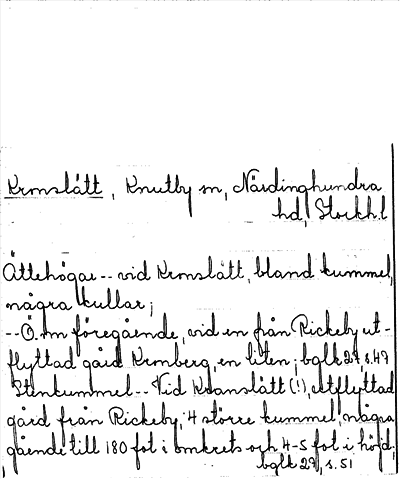 Krmslått, Knutby sn, Närdinghundra
hd, Stockh.l
Ättehögar -- vid Krmslått, bland kummel,
några kullar;
-- Ö. om föregående, vid en från Rickeby ut-
flyttad gård Krmberg, en liten; bglk 29, s.49
Stenkummel -- Vid Kranslått (!), utflyttad
gård från Rickeby, 4 större kummel, några
gående till 180 fot i omkrets och 4-5 fot i höjd.
bglk 29, s. 51